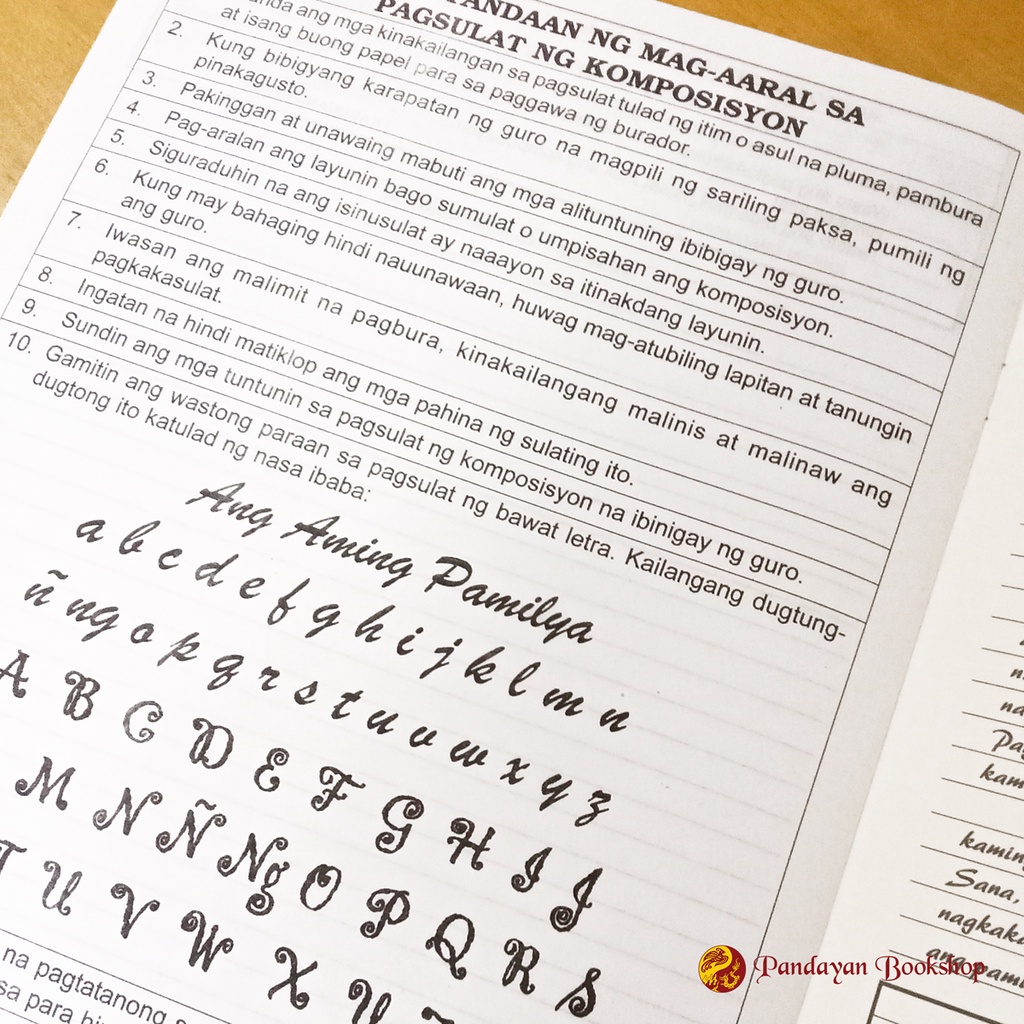 TANDAAN NG MAG-AARAL SA
PAGSULAT NG KOMPOSISYON
ang mga kinakailangan sa pagsulat tulad ng itim o asul na pluma, pambura
at isang buong papel para sa paggawa ng burador.
2. Kung bibigyang karapatan ng guro na magpili ng sariling paksa, pumili ng
pinakagusto.
3. Pakinggan at unawaing mabuti ang mga alituntuning ibibigay ng guro.
4. Pag-aralan ang layunin bago sumulat o umpisahan ang komposisyon.
5. Siguraduhin na ang isinusulat ay naaayon sa itinakdang layunin.
6. Kung may bahaging hindi nauunawaan, huwag mag-atubiling lapitan at tanungin
ang guro.
7. Iwasan ang malimit na pagbura, kinakailangang malinis at malinaw ang
pagkakasulat.
8. Ingatan na hindi matiklop ang mga pahina ng sulating ito.
9. Sundin ang mga tuntunin sa pagsulat ng komposisyon na ibinigay ng guro.
10. Gamitin ang wastong paraan sa pagsulat ng bawat letra. Kailangang dugtung-
dugtong ito katulad ng nasa ibaba:
Ang Aming Pamilya
a b c d e f g h i j k l m n
ñ ng o p q r s t u v w x y z
A B C D E F G H I J
M N Ñ Ng O P Q R S
T U V W X Y
na pagtatanong
sa para
kamin
Sana,
Pandayan Bookshop